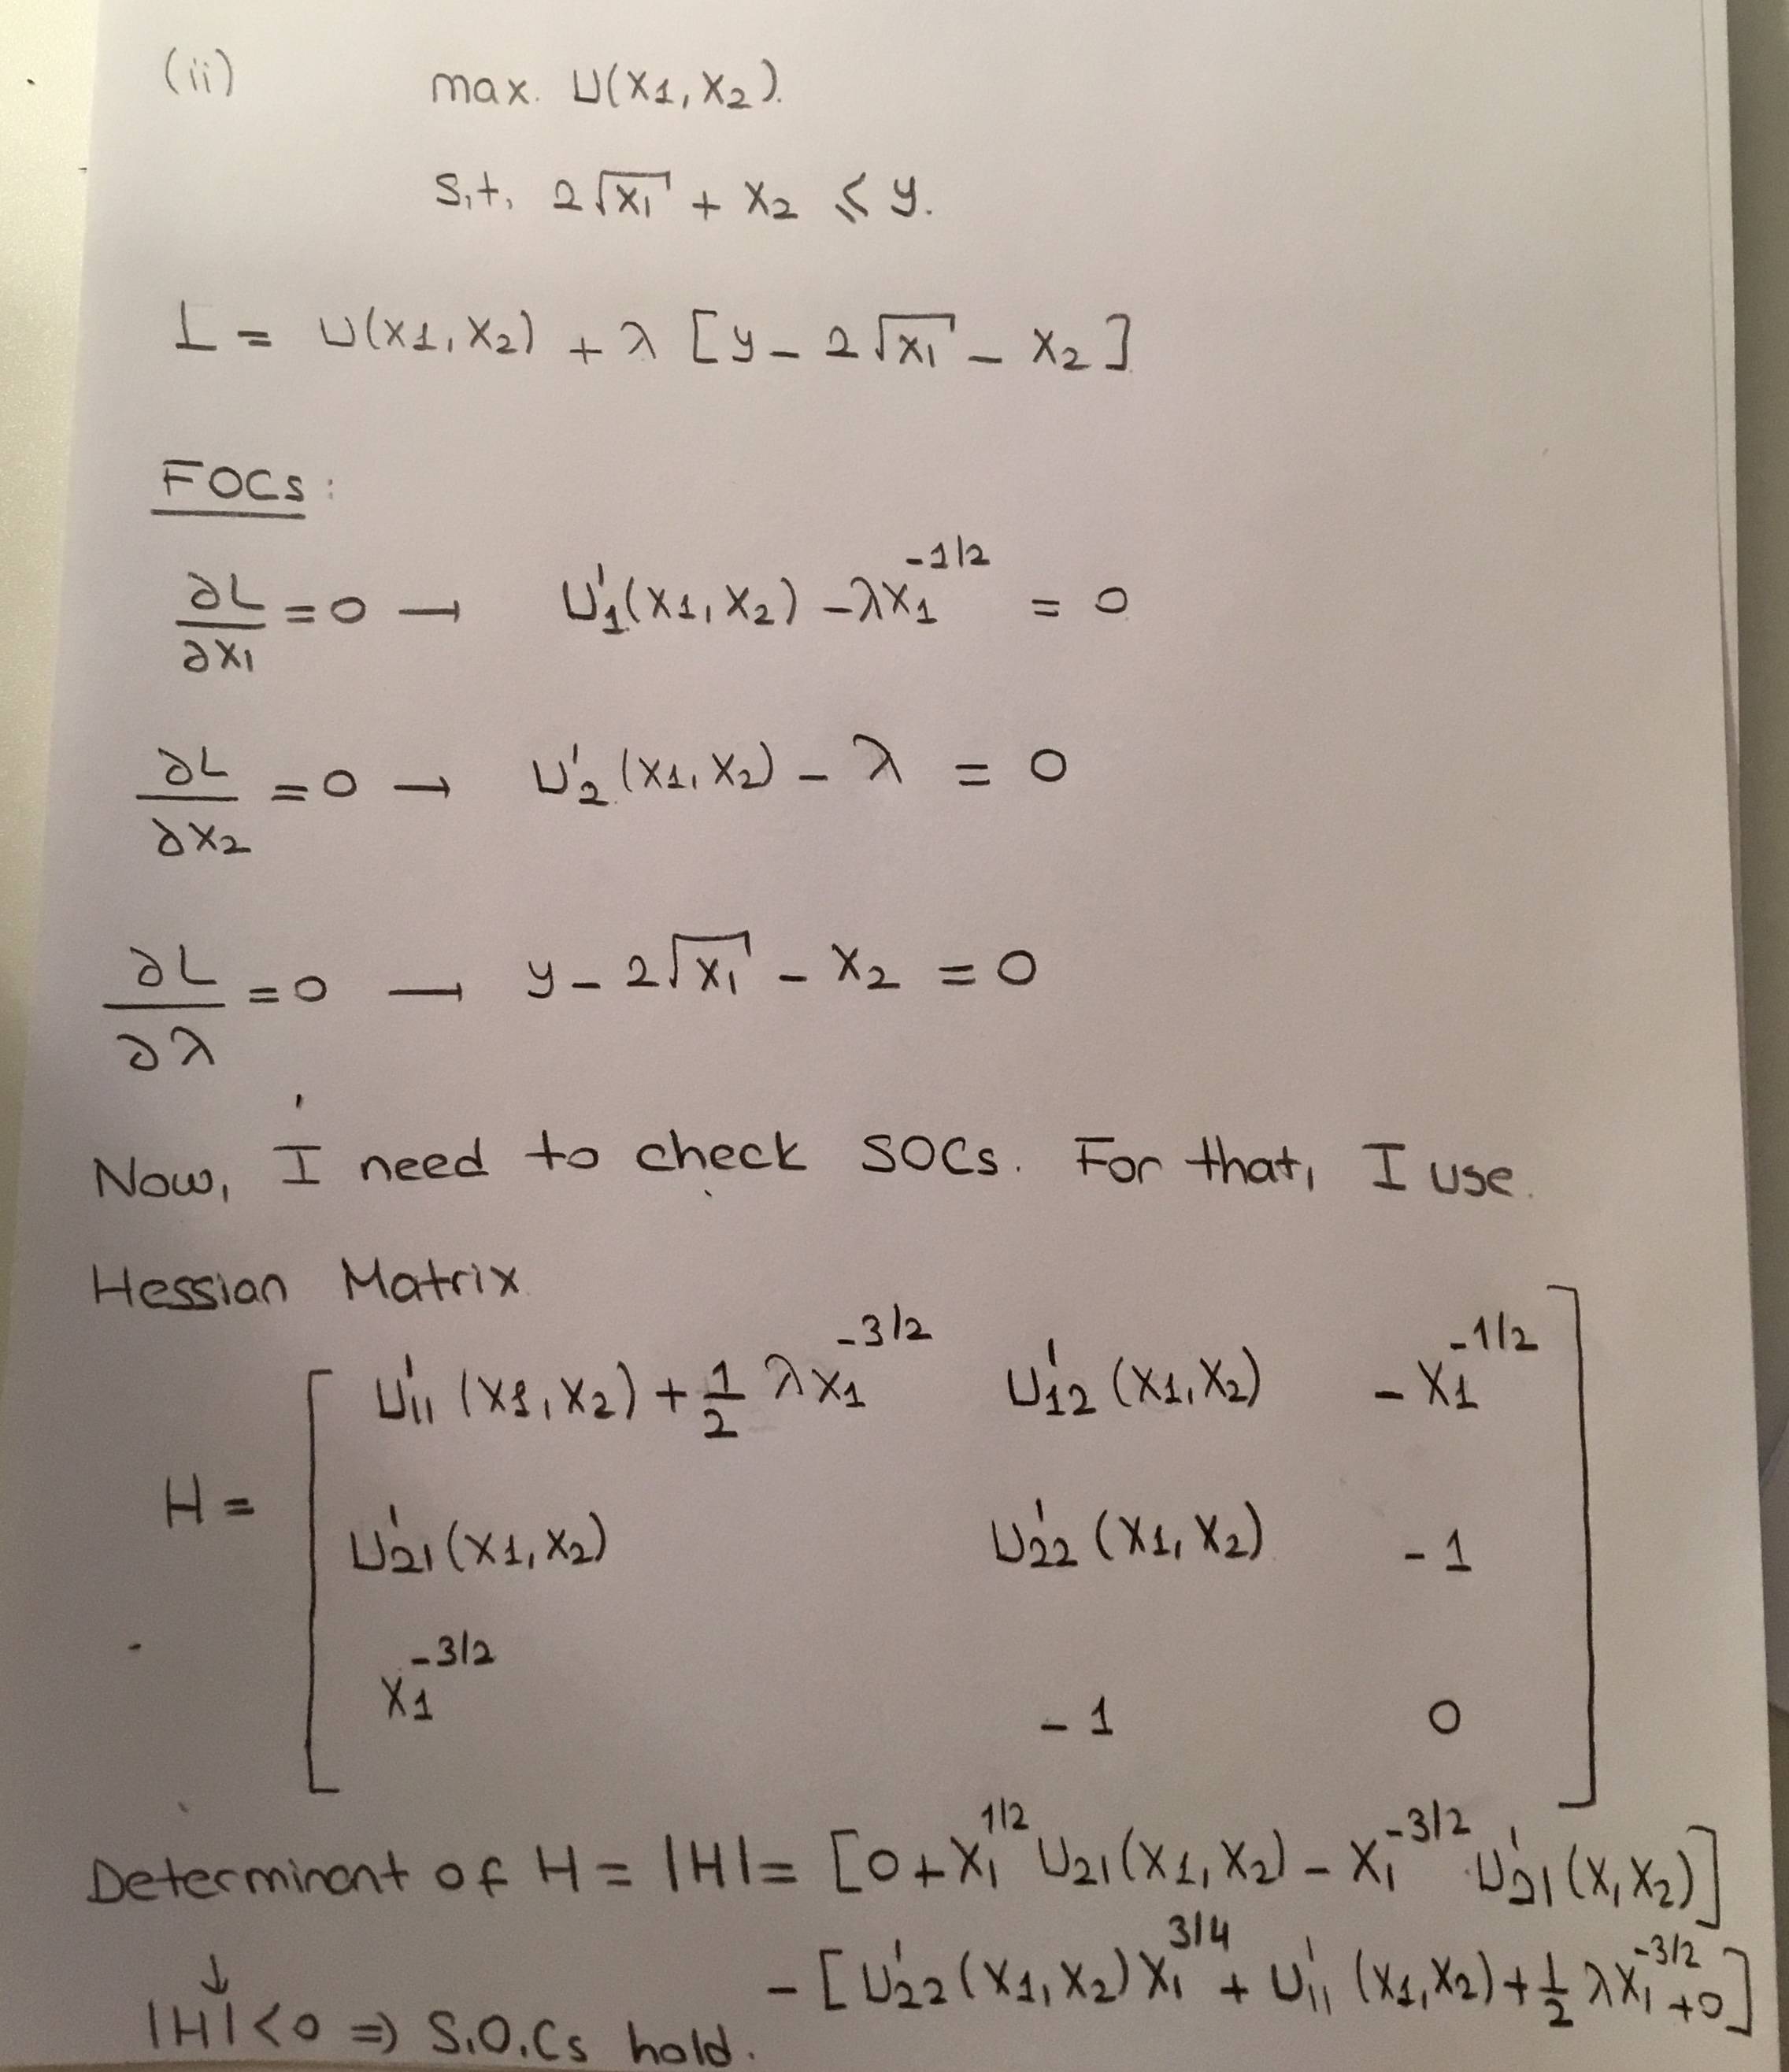 (ii) max. U(x1, x2).
s.t. 2√x1 + x2 ≤ y.
L = U(x1, x2) + λ [y - 2√x1 - x2]
FOCs:
∂L/∂x1 = 0 → U'1(x1, x2) - λx1^-1/2 = 0
∂L/∂x2 = 0 → U'2(x1, x2) - λ = 0
∂L/∂λ = 0 → y - 2√x1 - x2 = 0
Now, I need to check SOCs. For that, I use.
Hessian Matrix
H = [ U'11(x1, x2) + 1/2 λx1^-3/2 U'12(x1, x2) - x1^-1/2
U'21(x1, x2) U'22(x1, x2) -1
x1^-3/2 -1 0 ]
Determinant of H = |H| = [0 + x1^1/2 U21(x1, x2) - x1^-3/2 U'21(x, x2)]
- [U'22(x1, x2) x1^3/4 + U'11(x1, x2) + 1/2 λx1^-3/2 + 0]
↓
|H| < 0 ⇒ S.O.Cs hold.